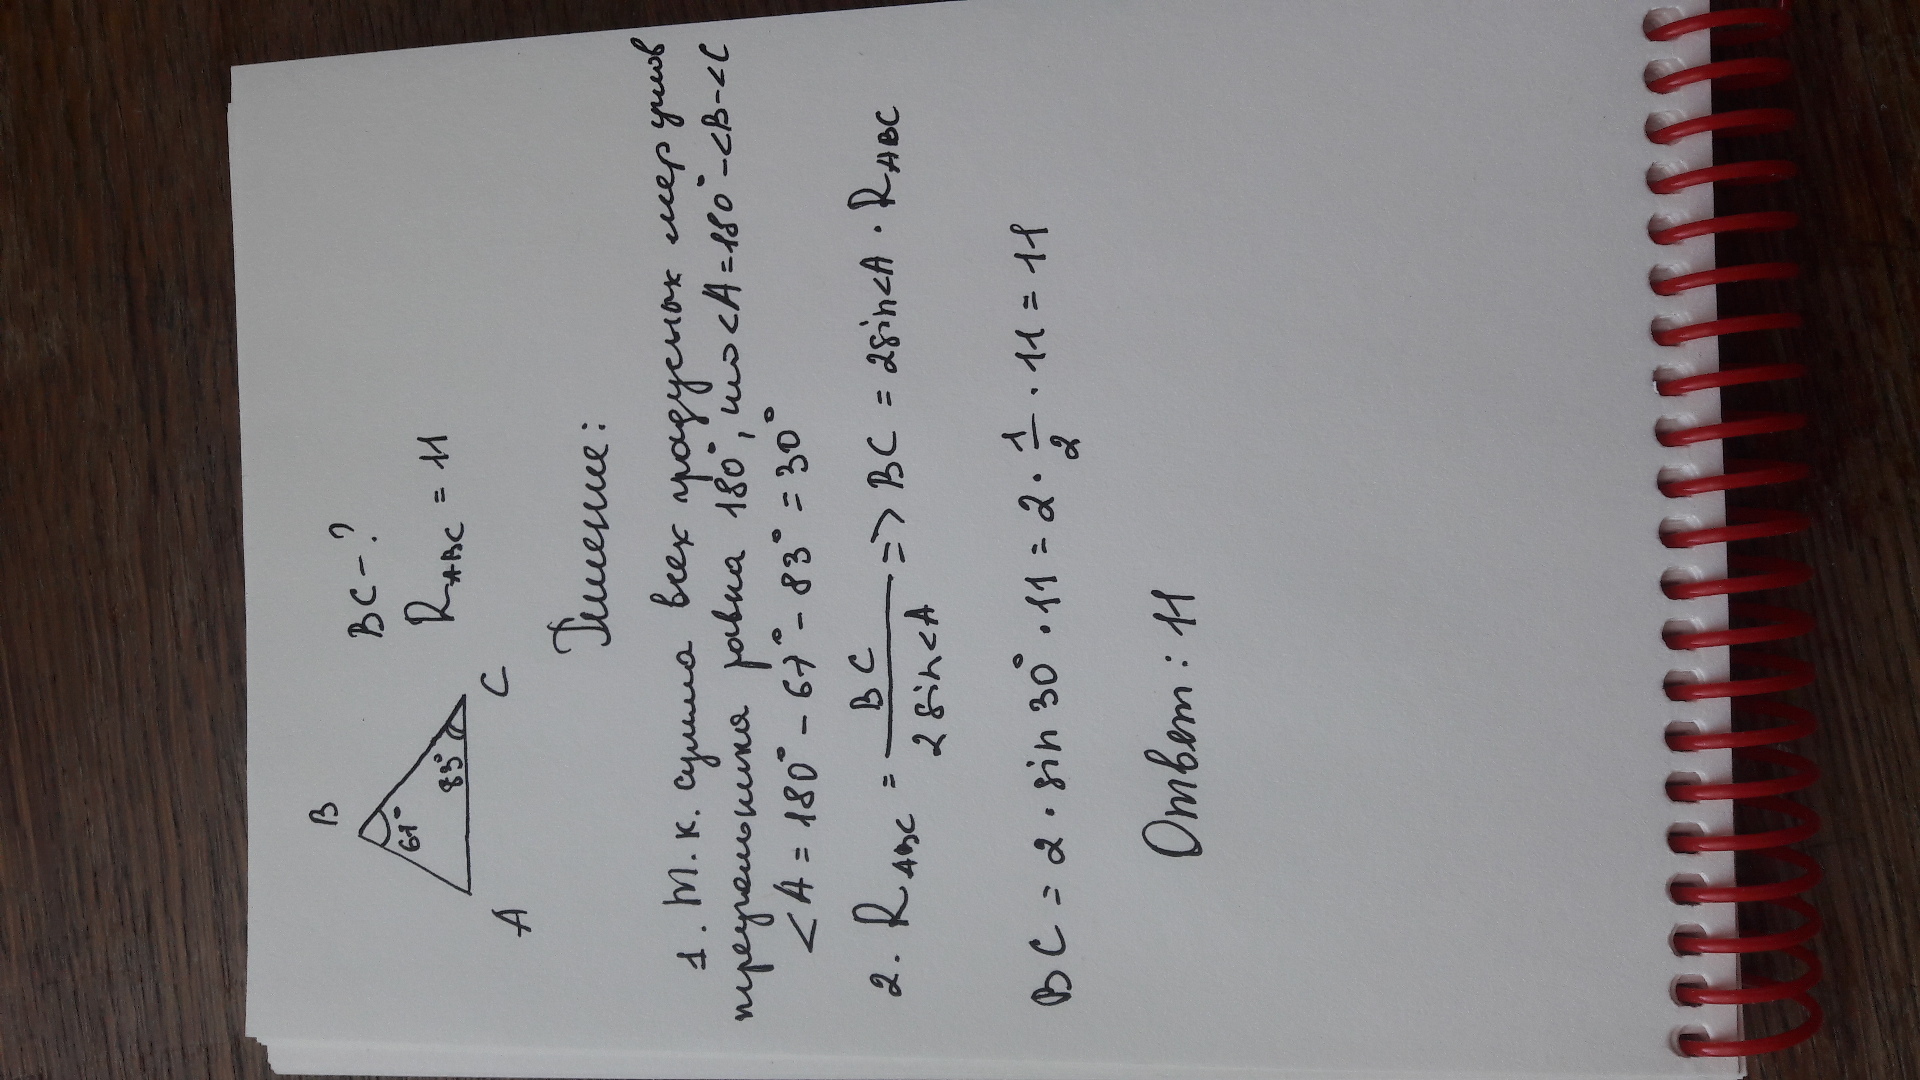 B
67°
83°
A
C
BC - ?
R ABC = 11
Решение:
1. Т.к. сумма всех градусных мер углов
треугольника равна 180°, то <A = 180° - <B - <C
<A = 180° - 67° - 83° = 30°
2. R ABC = BC / 2 sin<A => BC = 2sin<A · R ABC
BC = 2 · sin 30° · 11 = 2 · 1/2 · 11 = 11
Ответ: 11